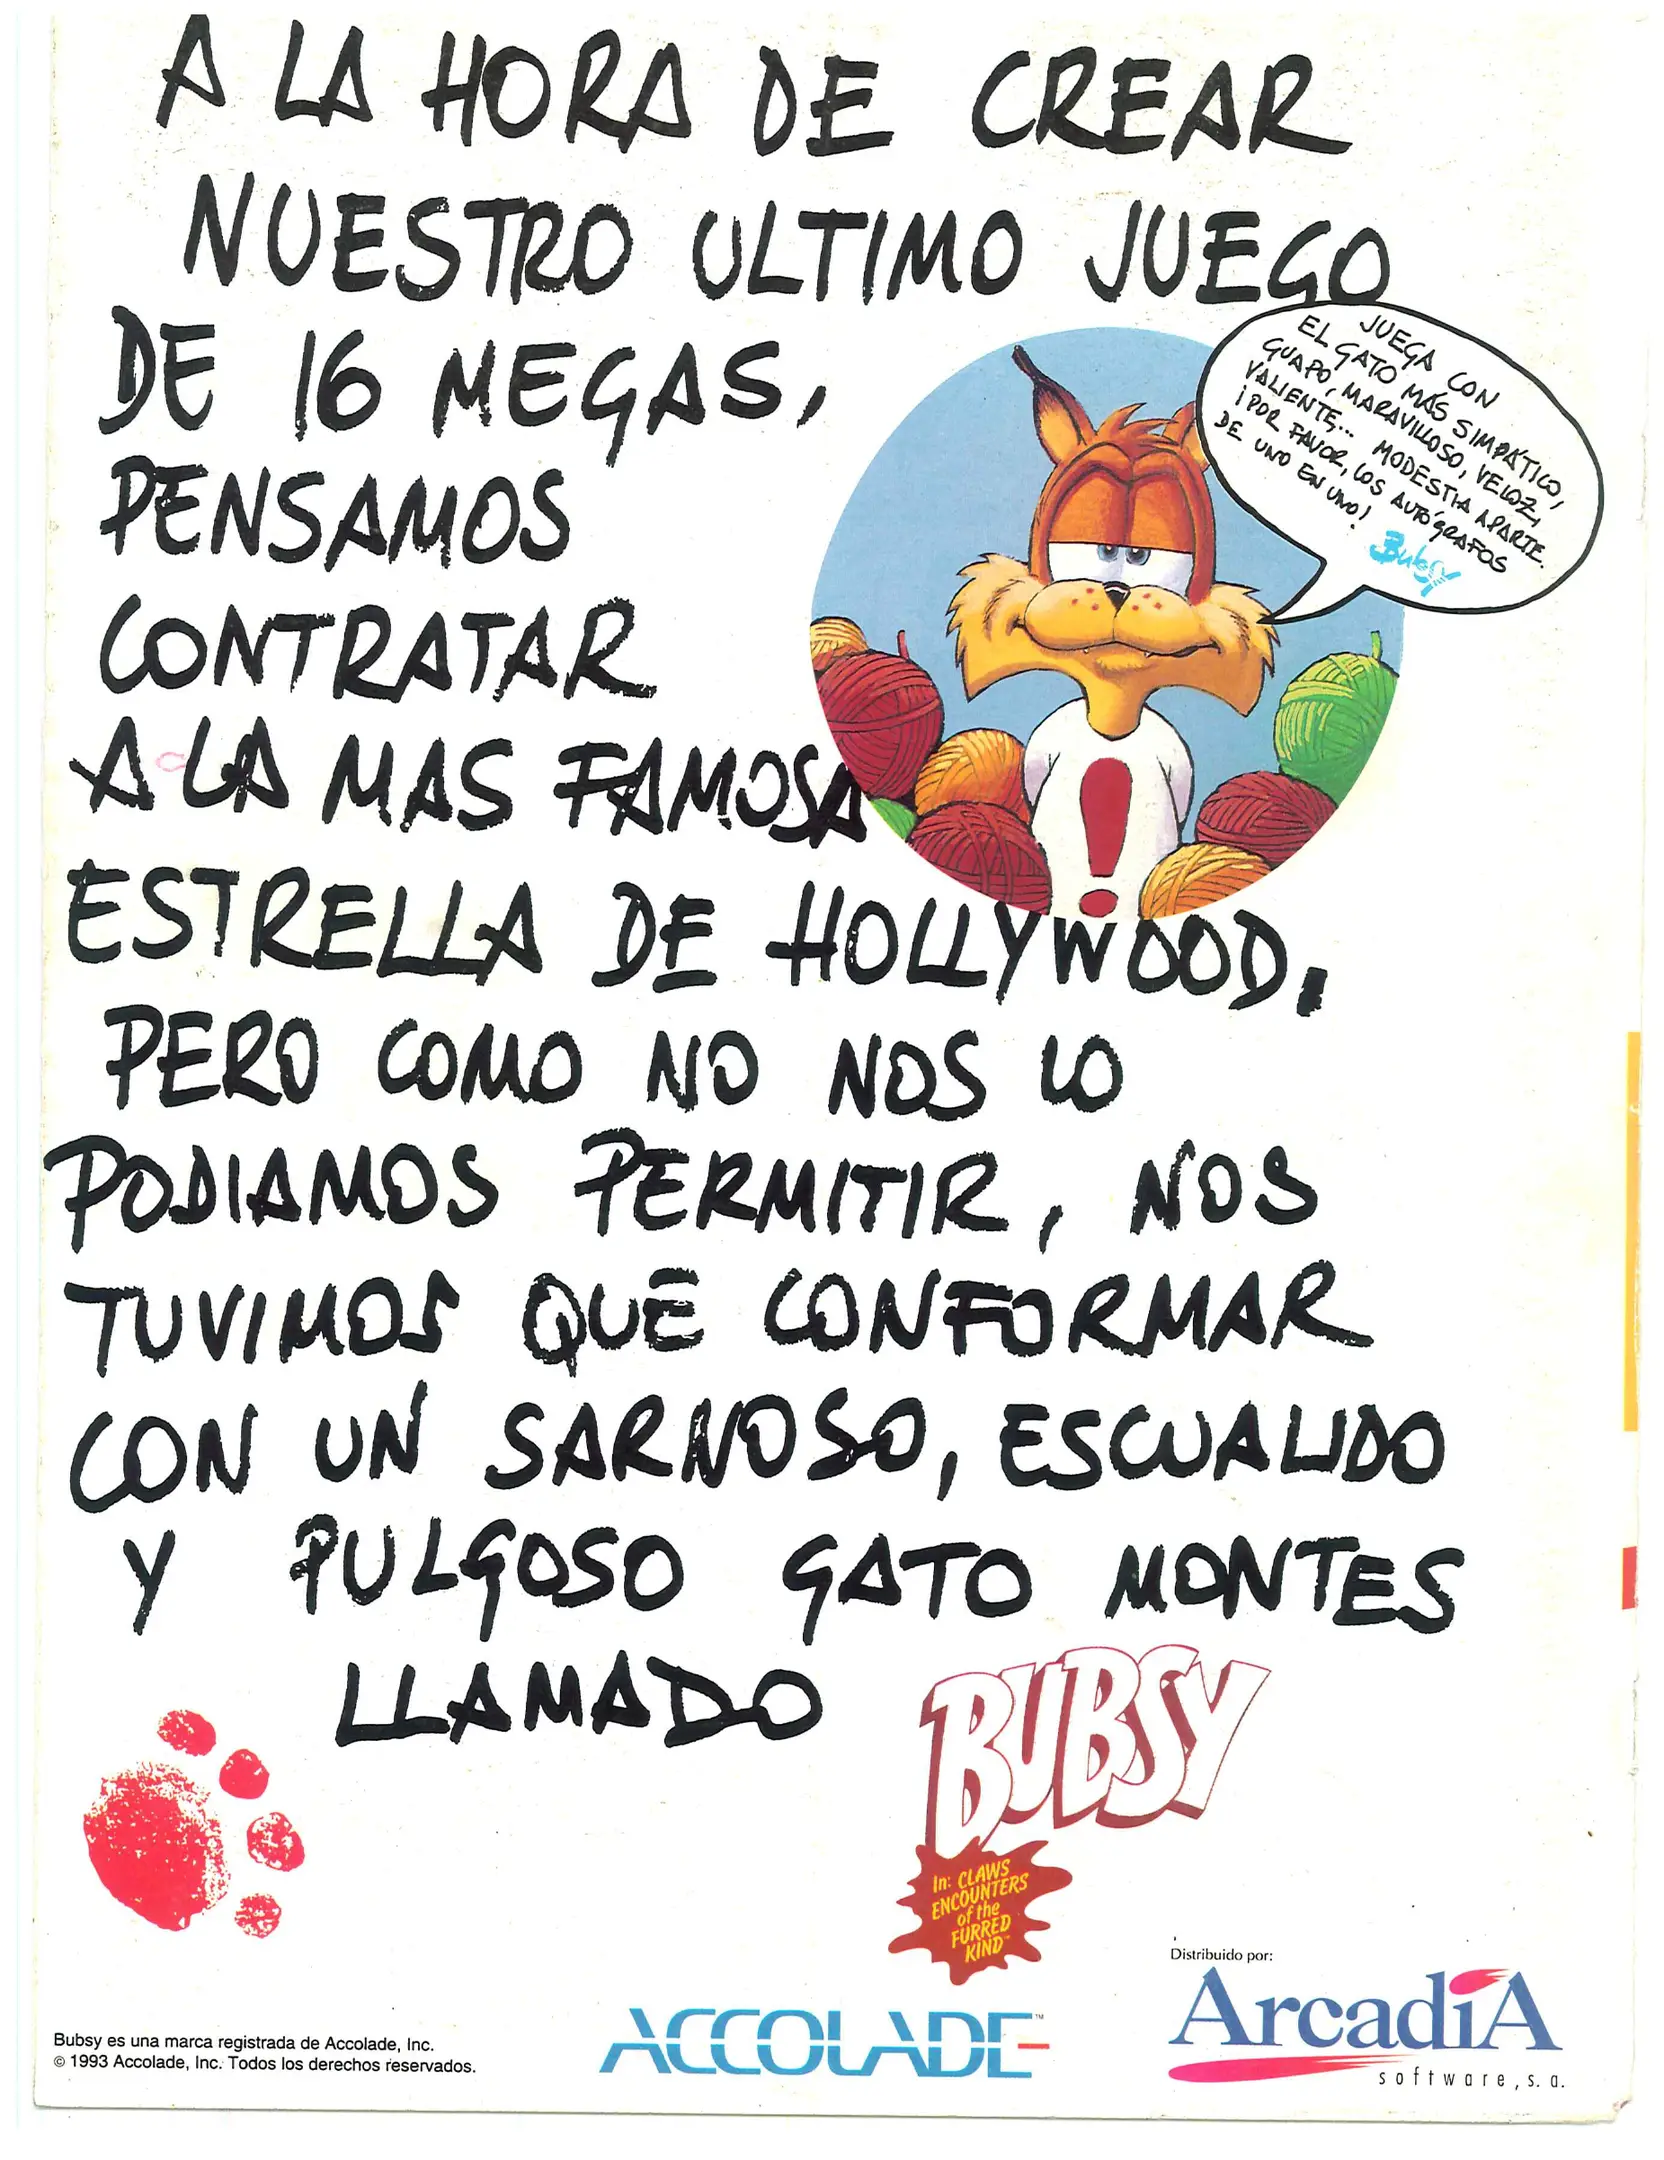 A LA HORA DE CREAR
NUESTRO ULTIMO JUEGO
DE 16 MEGAS,
PENSAMOS
CONTRATAR
A LA MAS FAMOSA
ESTRELLA DE HOLLYWOOD.
PERO COMO NO NOS LO
PODIAMOS PERMITIR, NOS
TUVIMOS QUE CONFORMAR
CON UN SARNOSO, ESCUALIDO
Y PULGOSO GATO MONTES
LLAMADO
JUEGA CON
EL GATO MÁS SIMPÁTICO,
GUAPO, MARAVILLOSO, VELOZ,
VALIENTE... MODESTIA APARTE.
¡POR FAVOR, LOS AUTÓGRAFOS
DE UNO EN UNO!
Bubsy
BUBSY
In: CLAWS
ENCOUNTERS
of the
FURRED
KIND™
Distribuido por:
ArcadiA
software, s.a.
ACCOLADE™
Bubsy es una marca registrada de Accolade, Inc.
© 1993 Accolade, Inc. Todos los derechos reservados.